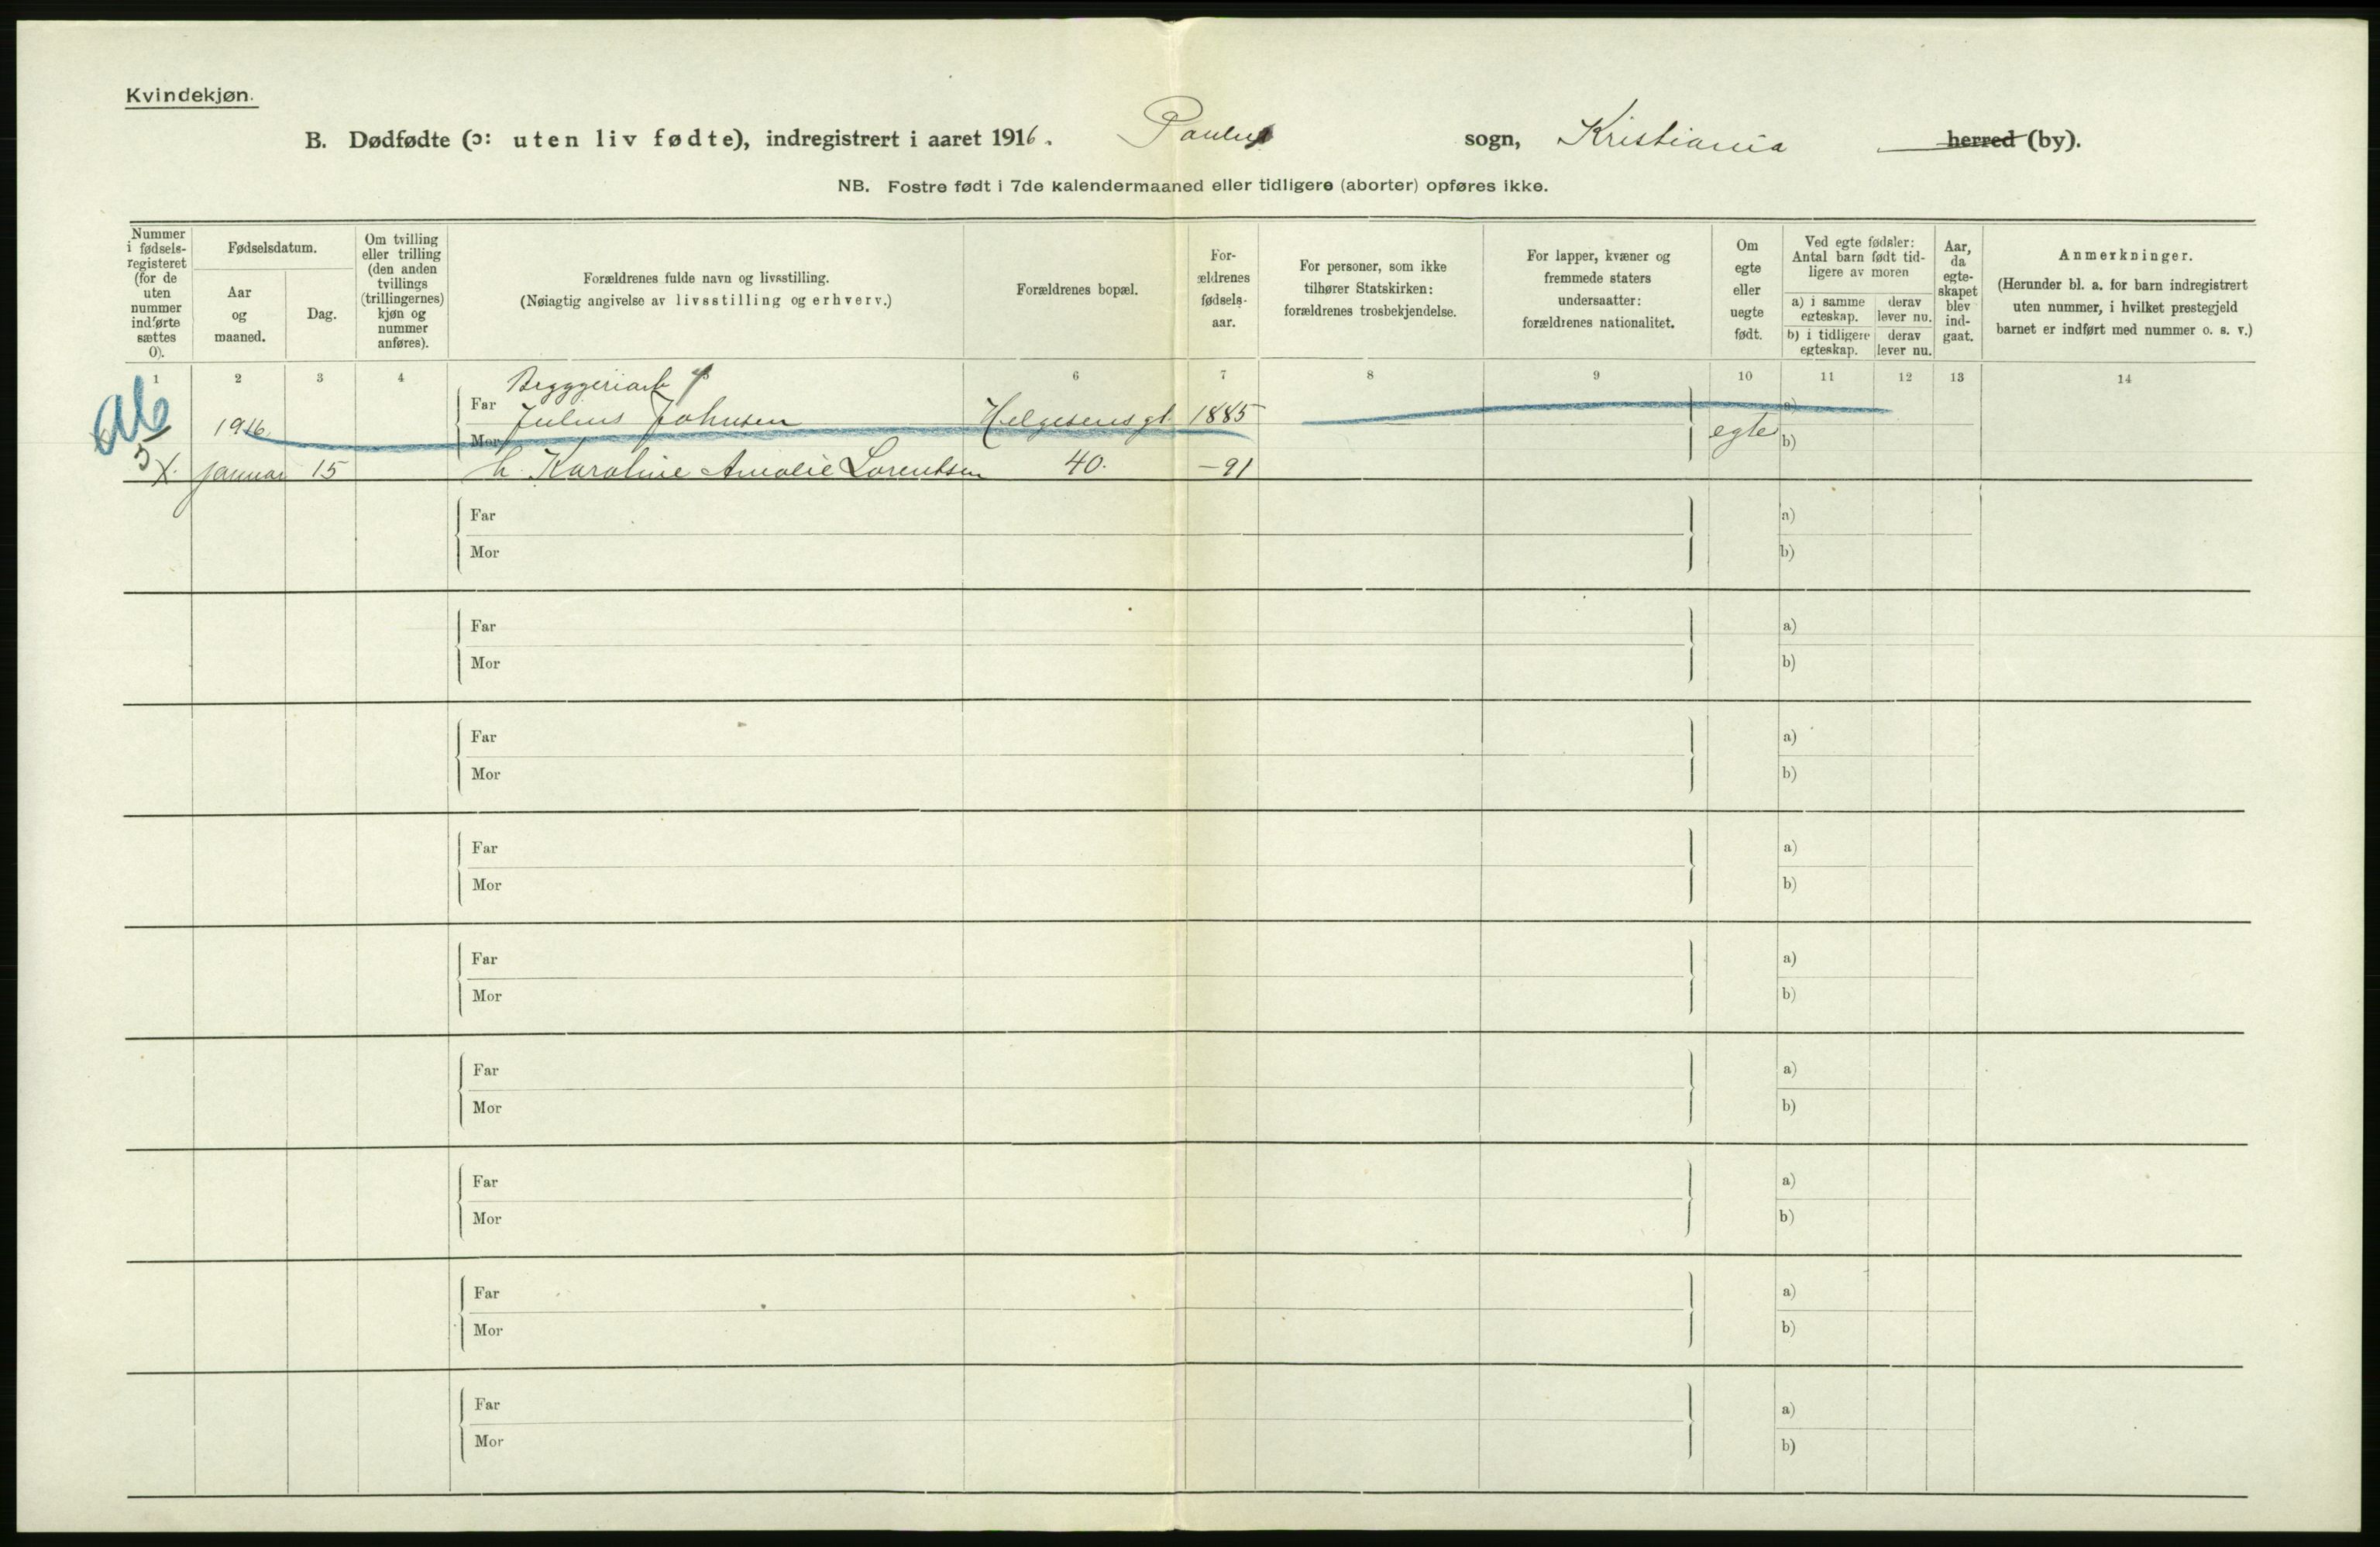 Kvindekjøn.
B. Dødfødte (ɔ: uten liv fødte), indregistrert i aaret 1916. Paulus sogn, Kristiania herred (by).
NB. Fostre født i 7de kalendermaaned eller tidligere (aborter) opføres ikke.
Nummer i fødsels-registeret (for de uten nummer indførte sættes 0).
Fødselsdatum.
Aar og maaned.
Dag.
Om tvilling eller trilling (den anden tvillings (trillingernes) kjøn og nummer anføres).
Forældrenes fulde navn og livsstilling.
(Nøiagtig angivelse av livsstilling og erhverv.)
Forældrenes bopæl.
For-ældrenes fødsels-aar.
For personer, som ikke tilhører Statskirken: forældrenes trosbekjendelse.
For lapper, kvæner og fremmede staters undersaatter: forældrenes nationalitet.
Om egte eller uegte født.
Ved egte fødsler: Antal barn født tid-ligere av moren
a) i samme egteskap. derav lever nu.
b) i tidligere egteskap. derav lever nu.
Aar, da egte-skapet blev ind-gaat.
Anmerkninger.
(Herunder bl. a. for barn indregistrert uten nummer, i hvilket prestegjeld barnet er indført med nummer o. s. v.)
1 2 3 4 6 7 8 9 10 11 12 13 14
Bryggeriarb
1916 Far Julius Johnsen Helgesens gt. 1885 a)
Mor egte b)
januar 15 h. Karoline Amalie Lorentsen 40. -91
Far a)
Mor b)
Far a)
Mor b)
Far a)
Mor b)
Far a)
Mor b)
Far a)
Mor b)
Far a)
Mor b)
Far a)
Mor b)
Far a)
Mor b)
Far a)
Mor b)